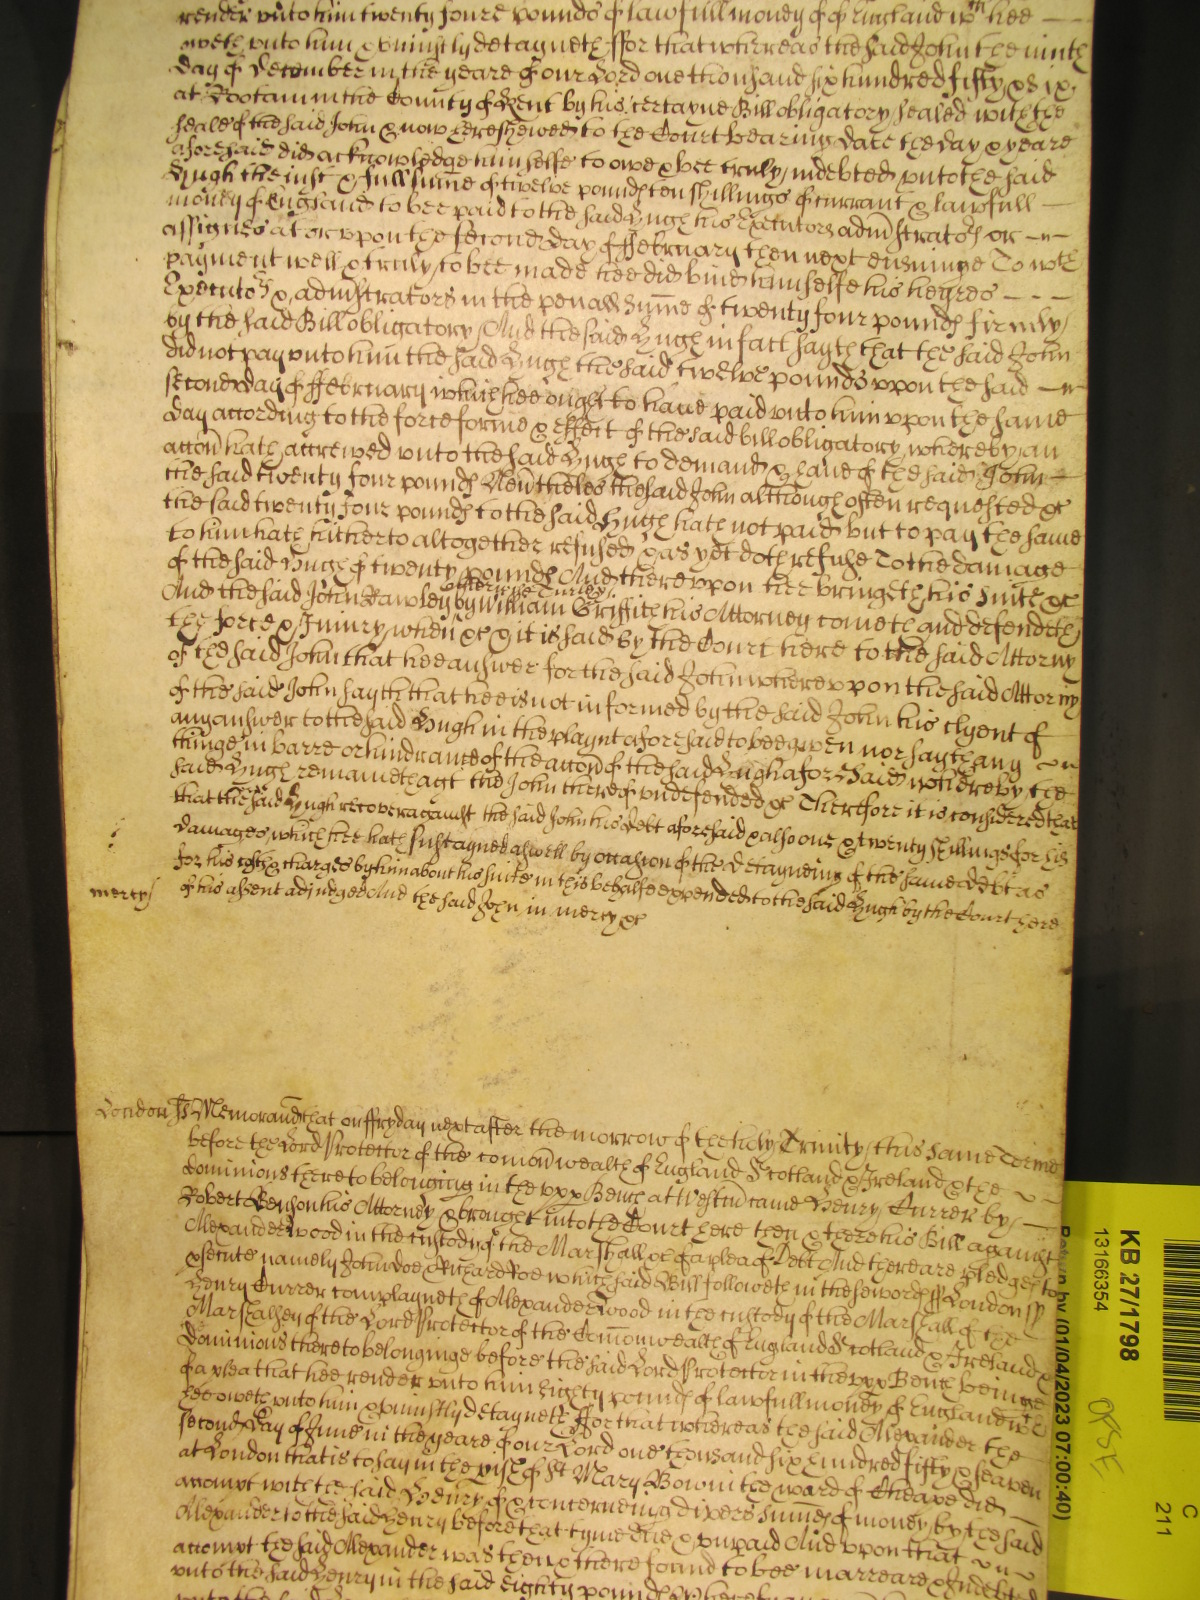 render unto him twenty foure pounds of lawfull money of England wch hee
oweth unto him & uniustly detayneth ffor that whereas the said John the ninth
day of December in the yeare of our Lord one thousand six hundred fifty & six
at Wootam in the County of Kent by his certayne Bill obligatory sealed with the
seale of the said John & now here shewed to the Court bearing date the day & yeare
aforesaid did acknowledge himselfe to owe & bee truly indebted unto the said
Hugh the iust & full summe of twelve pounds ten shillings of currant & lawfull
money of England to bee paid to the said Hugh his Executors administrators or
assignes at or uppon the second day of ffebruary then next ensuinge To wch
payment well & truly to bee made hee did bind himselfe his heyres
Executors & administrators in the penall summe of twenty four pounds firmly
by the said Bill obligatory And the said Hugh in fact sayth that the said John
did not pay unto him the said Hugh the said twelve pounds uppon the said
second day of ffebruary which hee ought to have paid unto him uppon the same
day according to the force forme & effect of the said bill obligatory whereby an
accon hath accrewed unto the said Hugh to demand & have of the said John
the said twenty four pounds Neverthelesse the said John although often requested &c
the said twenty four pounds to the said Hugh hath not paid but to pay the same
to him hath hitherto altogether refused & as yet doth refuse To the damage
of the said Hugh of twenty pounds And thereuppon hee bringeth his suite &c
And the said John Hawley otherwise Turley by William Griffith his Attorney cometh and defendeth
the force & Iniury when &c & it is said by the Court here to the said Attorny
of the said John that hee answer for the said John whereuppon the said Attorny
of the said John sayth that hee is not informed by the said John his clyent of
any answer to the said Hugh in the playnt aforesaid to bee given nor sayth any
thinge in barre or hindrance of the accon of the said Hugh aforesaid whereby the
said Hugh remaineth agt the John thereof undefended &c Therefore it is considered that
that the said Hugh recover against the said John his debt aforesaid & also one & twenty shillings for his
damages which hee hath sustayned aswell by occasion of the detayneing of the same debt as
for his costs & charges by him about his suite in this behalfe expended to the said Hugh by the Court here
mercy of his assent adiudged And the said John in mercy &c
London ss Memorand that on ffryday next after the morrow of the holy Trinity this same Terme
before the Lord Protector of the comonwealth of England Scotland & Ireland & the
dominions thereto belonging in the upp Bench at Westm came Henry Currer by
Robert Benson his Attorney & brought into the Court here then & there his Bill against
Alexander Wood in the custody of the Marshall &c of a plea of Debt And there are pledges to
psecute namely John Doe & Richard Roe which said Bill followeth in these words ss London ss
Henry Currer complayneth of Alexander Wood in the custody of the Marshall of the
Marshalsey of the Lord Protector of the Comonwealth of England Scotland & Ireland &
dominions thereto belonginge before the said Lord Protector in the upp Bench beinge
of a plea that hee render unto him Eighty pounds of lawfull money of England wch
hee oweth unto him & uniustly detayneth ffor that whereas the said Alexander the
second day of June in the yeare of our Lord one thousand six hundred fifty & seaven
at London that is to say in the pish of St Mary Bow in the ward of Cheape did
accompt with the said Henry of & concerneing divers summes of money by the said
Alexander to the said Henry before that tyme due & unpaid And uppon that
accompt the said Alexander was then & there found to bee in arreare & Indebted
unto the said Henry in the said eighty pounds
KB 27/1798
13166354
Return by (01/04/2023 07:00:40)
C
211